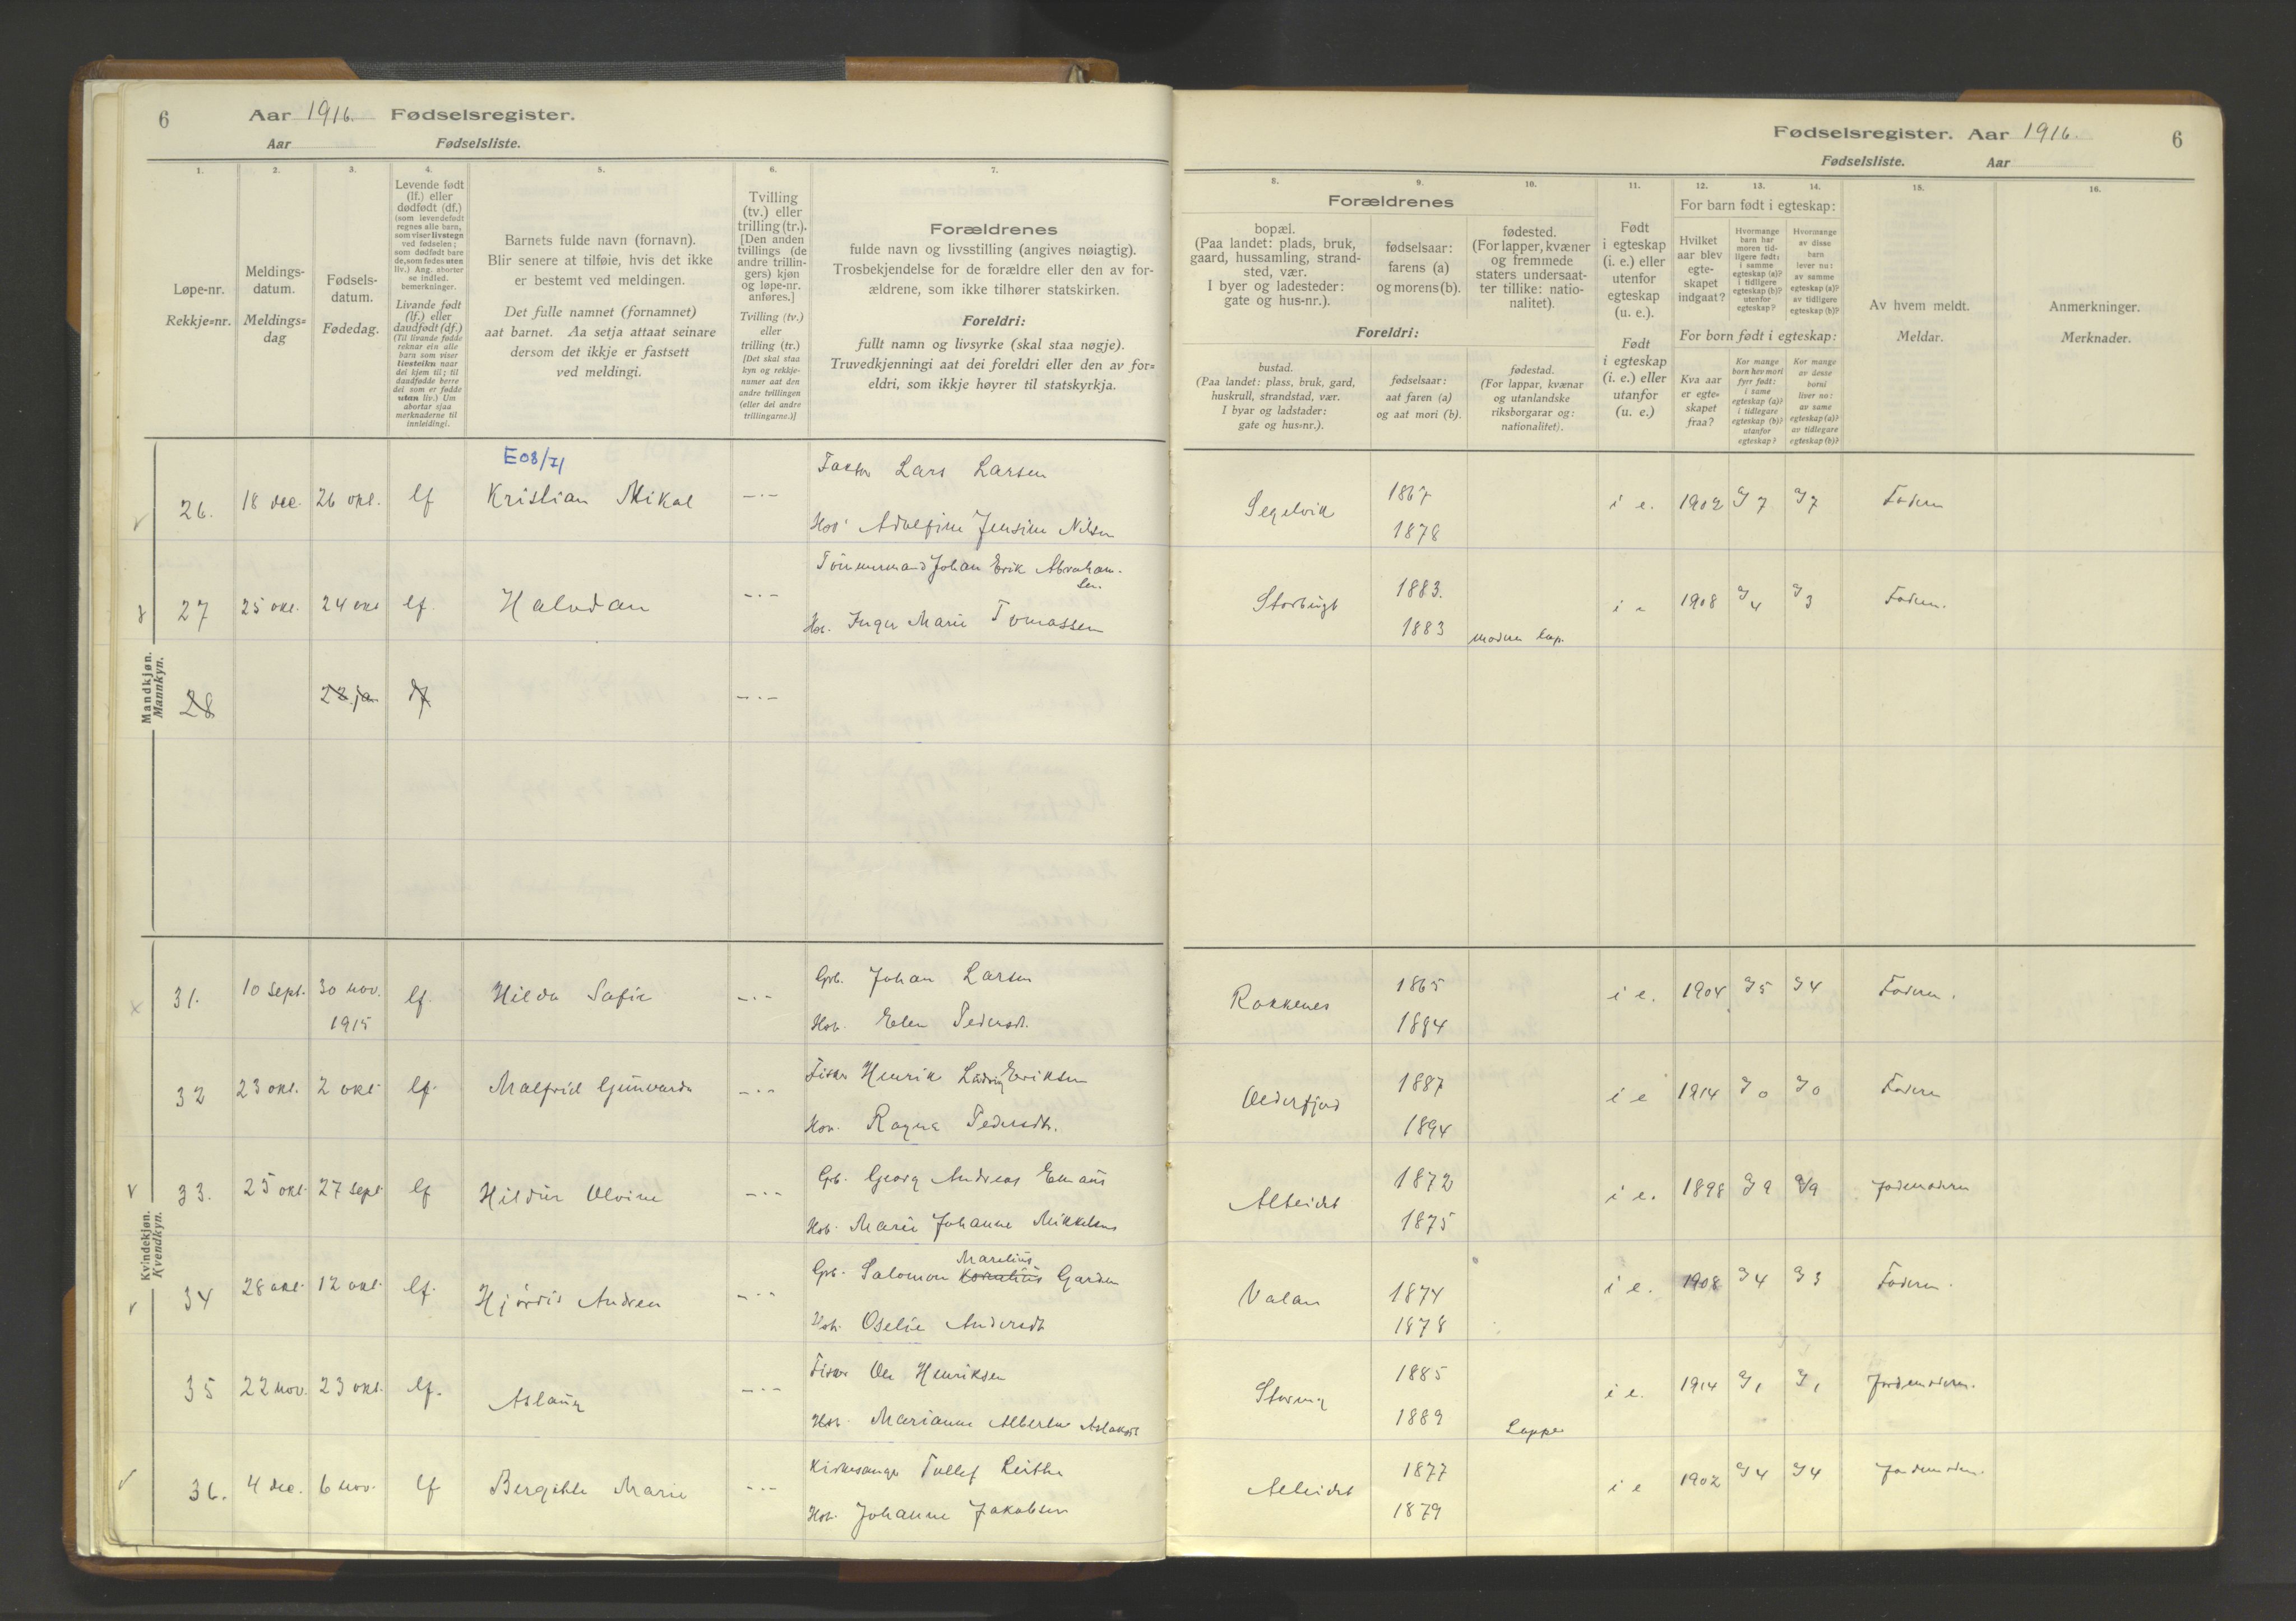 6 Aar 1916. Fødselsregister.
Aar Fødselsliste.
Fødselsregister. Aar 1916. 6
Fødselsliste. Aar
1. 2. 3. 4. 5. 6. 7.
Løpe-nr.
Rekkje=nr.
Meldings-
datum.
Meldings=
dag
Fødsels-
datum.
Fødedag.
Levende født
(lf.) eller
dødfødt (df.)
(som levendefødt
regnes alle barn,
som viser livstegn
ved fødselen;
som dødfødt bare
de, som fødes uten
liv.) Ang. aborter
se indled.
bemerkninger.
Livande født
(lf.) eller
daudfødt (df.)
(Til livande fødde
reknar ein alle
barn som viser
livsteikn naar
dei kjem til; til
daudfødde berre
dei som er fødde
utan liv.) Um
abortar sjaa
merknaderne til
innleidingi.
Barnets fulde navn (fornavn).
Blir senere at tilføie, hvis det ikke
er bestemt ved meldingen.
Det fulle namnet (fornamnet)
aat barnet. Aa setja attaat seinare
dersom det ikkje er fastsett
ved meldingi.
Tvilling
(tv.) eller
trilling (tr.).
[Den anden
tvillings (de
andre trillin-
gers) kjøn
og løpe-nr.
anføres.]
Tvilling (tv.)
eller
trilling (tr.)
[Det skal staa
kyn og rekkje-
numer aat den
andre tvillingen
(eller dei andre
trillingarne.)]
Forældrenes
fulde navn og livsstilling (angives nøiagtig).
Trosbekjendelse for de forældre eller den av for-
ældrene, som ikke tilhører statskirken.
Foreldri:
fullt namn og livsyrke (skal staa nøgje).
Truvedkjenningi aat dei foreldri eller den av for=
eldri, som ikkje høyrer til statskyrkja.
8. 9. 10. 11. 12. 13. 14. 15. 16.
Forældrenes
bopæl.
(Paa landet: plads, bruk,
gaard, hussamling, strand-
sted, vær.
I byer og ladesteder:
gate og hus-nr.).
fødselsaar:
farens (a)
og morens (b).
fødested.
(For lapper, kvæner
og fremmede
staters undersaat-
ter tillike: natio-
nalitet).
Foreldri:
bustad.
(Paa landet: plass, bruk, gard,
huskrull, strandstad, vær.
I byar og ladstader:
gate og hus=nr.).
fødselsaar:
aat faren (a)
og aat mori (b).
fødestad.
(For lappar, kvænar
og utanlandske
riksborgarar og:
nationalitet).
Født
i egteskap
(i. e.) eller
utenfor
egteskap
(u. e.).
Født
i egteskap
(i. e.) eller
utanfor
(u. e.)
For barn født i egteskap:
Hvilket
aar blev
egte-
skapet
indgaat?
Hvormange
barn har
moren tid-
ligere født:
i samme
egteskap (a)?
i tidligere
egteskap (b)?
utenfor
egteskap?
Hvormange
av disse
barn
lever nu:
av samme
egteskap (a)?
av tidligere
egteskap (b)?
For born født i egteskap:
Kva aar
er egte=
skapet
fraa?
Kor mange
born hev mori
fyrr født:
i same
egteskap (a)?
i tidlegare
egteskap (b)?
utanfor
egteskap?
Kor mange
av desse
borni
liver no:
av same
egteskap (a)?
av tidlegare
egteskap (b)?
Av hvem meldt.
Meldar.
Anmerkninger.
Merknader.
Mandkjøn.
Mannkyn.
E08/71
26. 18 dec. 26 okt. lf Kristian Mikal -.- Lars Larsen Segelvik 1867 i e. 1902 7 7 Faderen
Adolfine Jensine Nilsen 1878
27 25 okt. 24 okt lf. Halvdan -.- Tömmermand Johan Erik Abraham-
sen. Storbugt 1883. 1908 4 3 Faderen.
Inger Marie Tomassen 1883 moderen lap.
28 28 jan. df -.-
Kvindekjøn.
Kvendkyn.
31. 10 sept. 30 nov. lf. Hilda Safie -.- Gpb. Johan Larsen Rakkenes 1865 i e. 1904 5 4 Faderen.
1915 Elen Pedersdt. 1884
32 23 okt. 2 okt lf. Malfrid Gunvarda -.- Fisker Henrik Ludvig Eriksen Olderfjord 1887 i e 1914 0 0 Faderen
Ragna Pedersdtr. 1894
33. 25 okt. 27 sept lf Hildur Olvine -.- Gpb. Georg Andreas Emaus Alteidet 1872 i e. 1898 9 9 Jordemoderen
Marie Johanne Mikkelsen 1875
34 28 okt. 12 okt. lf. Hjördis Andrea -.- Gpb. Salomon Kornelius Marelius Garden Valan 1874 i e. 1908 4 3 Faderen.
Oselie Andersdt 1878
35 22 nov. 23 okt. lf. Aslaug -.- Fisker Ole Henriksen 1885 i e. 1914 1 1 Jordemoderen.
Marianne Albertine Aslaksdt 1889 Lapper
36. 4 dec. 6 nov. lf Bergithe Marie -.- Kirkesanger Tollef Leithe Alteidet 1877 i e 1902 4 4 Jordemoderen.
Johanne Jakobsen 1879